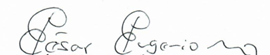 César Eugenio